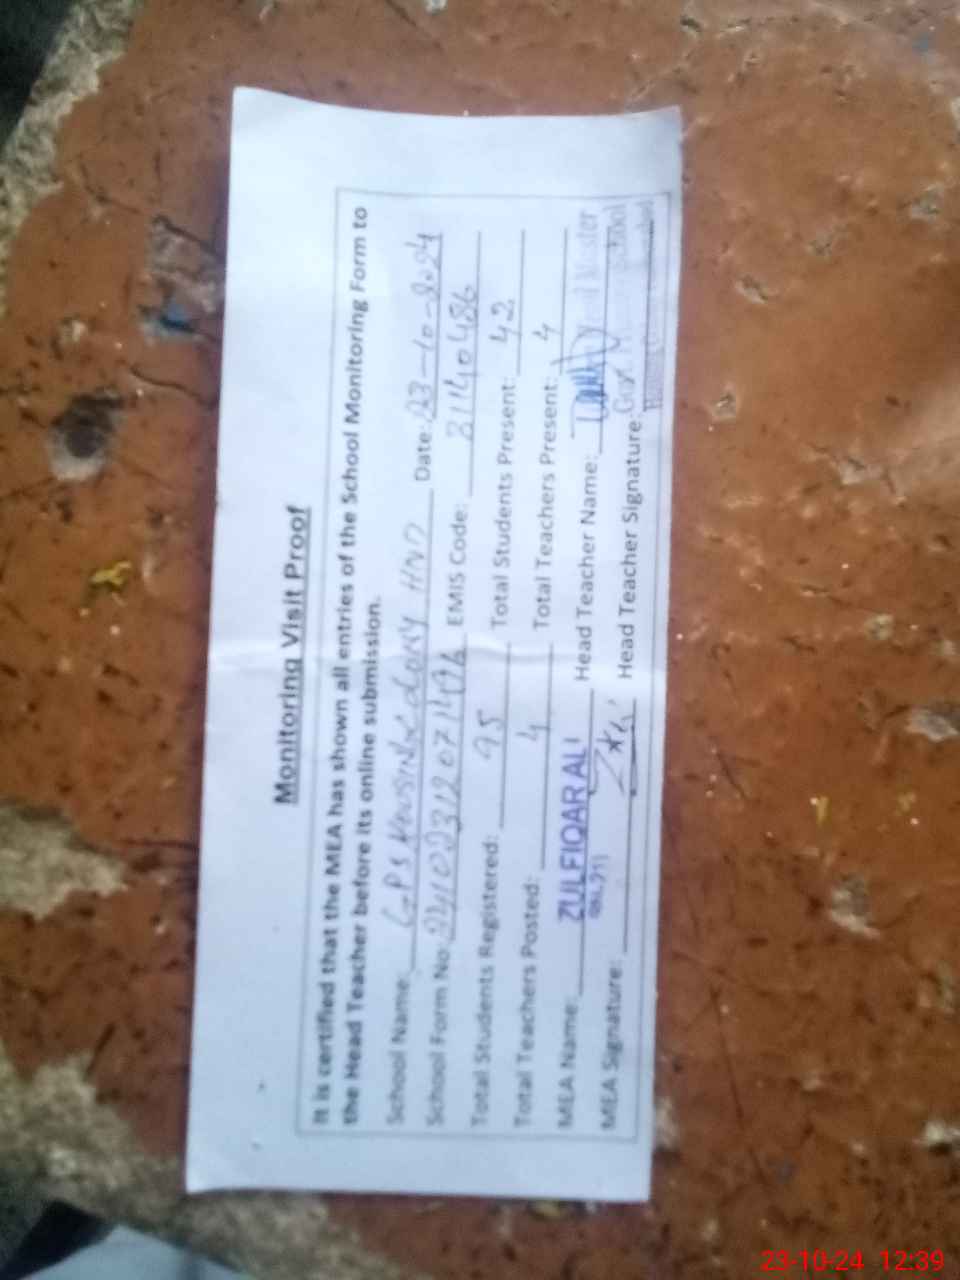 Monitoring Visit Proof
It is certified that the MEA has shown all entries of the School Monitoring Form to
the Head Teacher before its online submission.
School Name: GPS HOUSING COLONY HND Date: 23-10-2024
School Form No: EMIS Code: 31140486
Total Students Registered: 95 Total Students Present: 42
Total Teachers Posted: 4 Total Teachers Present: 4
MEA Name: ZULFIQAR ALI Head Teacher Name:
MEA Signature: Head Teacher Signature:
Head Master
School
23-10-24 12:39